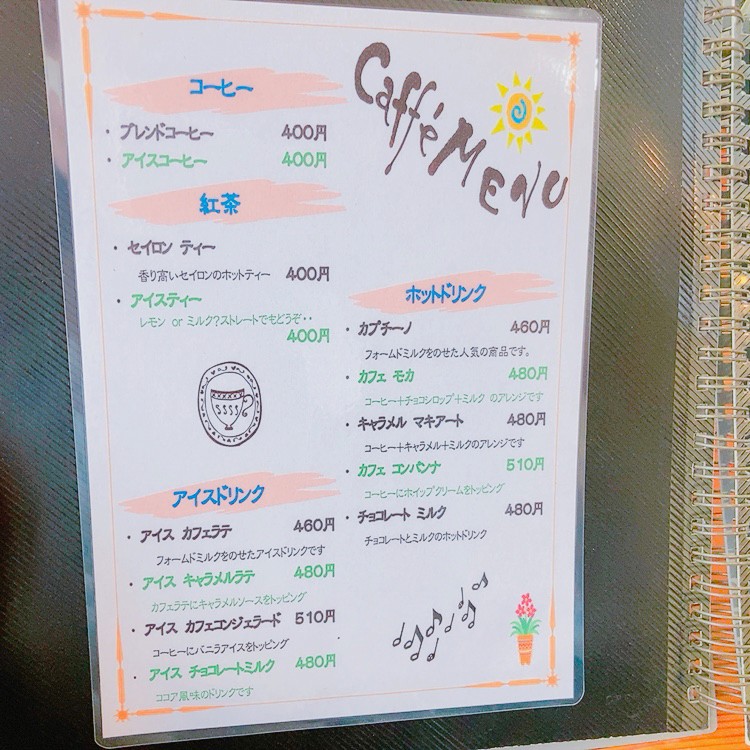 Caffe MENU
コーヒー
・ブレンドコーヒー 400円
・アイスコーヒー 400円
紅茶
・セイロン ティー
香り高いセイロンのホットティー 400円
・アイスティー
レモン or ミルク?ストレートでもどうぞ・・
400円
アイスドリンク
・アイス カフェラテ 460円
フォームドミルクをのせたアイスドリンクです
・アイス キャラメルラテ 480円
カフェラテにキャラメルソースをトッピング
・アイス カフェコンジェラード 510円
コーヒーにバニラアイスをトッピング
・アイス チョコレートミルク 480円
ココア風味のドリンクです
ホットドリンク
・カプチーノ 460円
フォームドミルクをのせた人気の商品です。
・カフェ モカ 480円
コーヒー+チョコシロップ+ミルク のアレンジです
・キャラメル マキアート 480円
コーヒー+キャラメル+ミルクのアレンジです
・カフェ コンパンナ 510円
コーヒーにホイップクリームをトッピング
・チョコレート ミルク 480円
チョコレートとミルクのホットドリンク